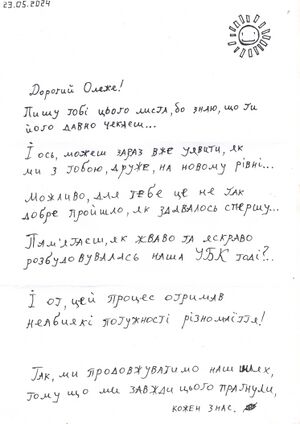 23.05.2024
Дорогий Олеже!
Пишу тобі цього листа, бо знаю, що ти
його давно чекаєш...
І ось, можеш зараз вже уявити, як
ми з тобою, друже, на новому рівні...
Можливо, для тебе це не так
добре пройшло, як здавалось спершу...
Пам'ятаєш, як жваво та яскраво
розбудовувалась наша УБК тоді?..
І от, цей процес отримав
неабиякі потужності різномаїття!
Так, ми продовжуватимо наш шлях,
тому що ми завжди цього прагнули,
кожен з нас.